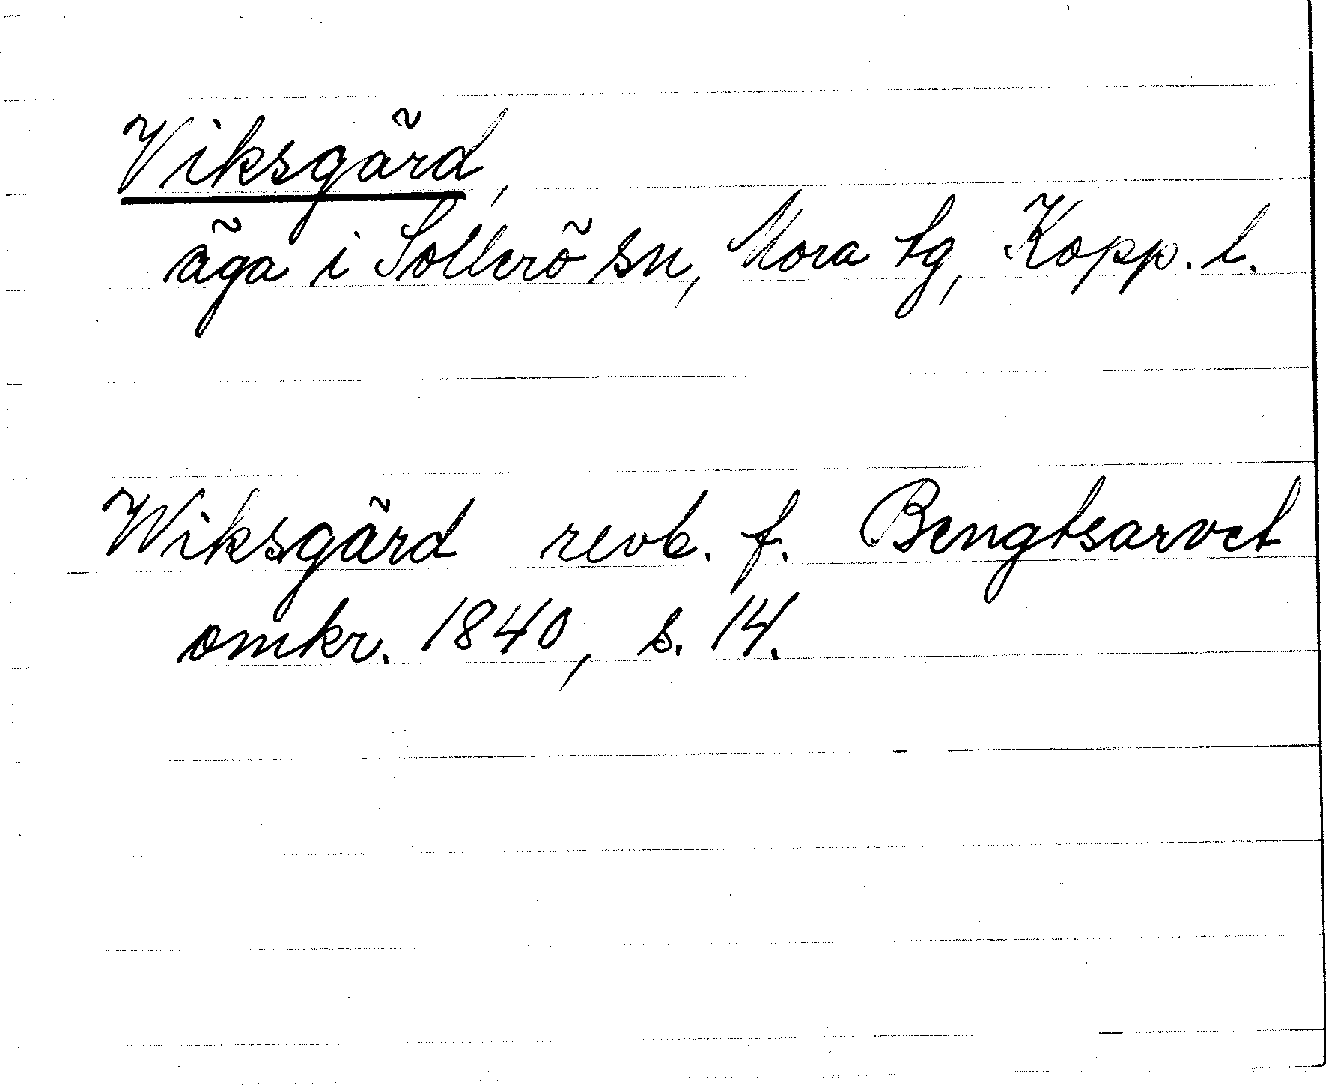 Viksgärd,
äga i Sollerö sn, Mora tg, Kopp. l.
Wiksgärd revb. f. Bengtsarvet
omkr. 1840, s. 14.